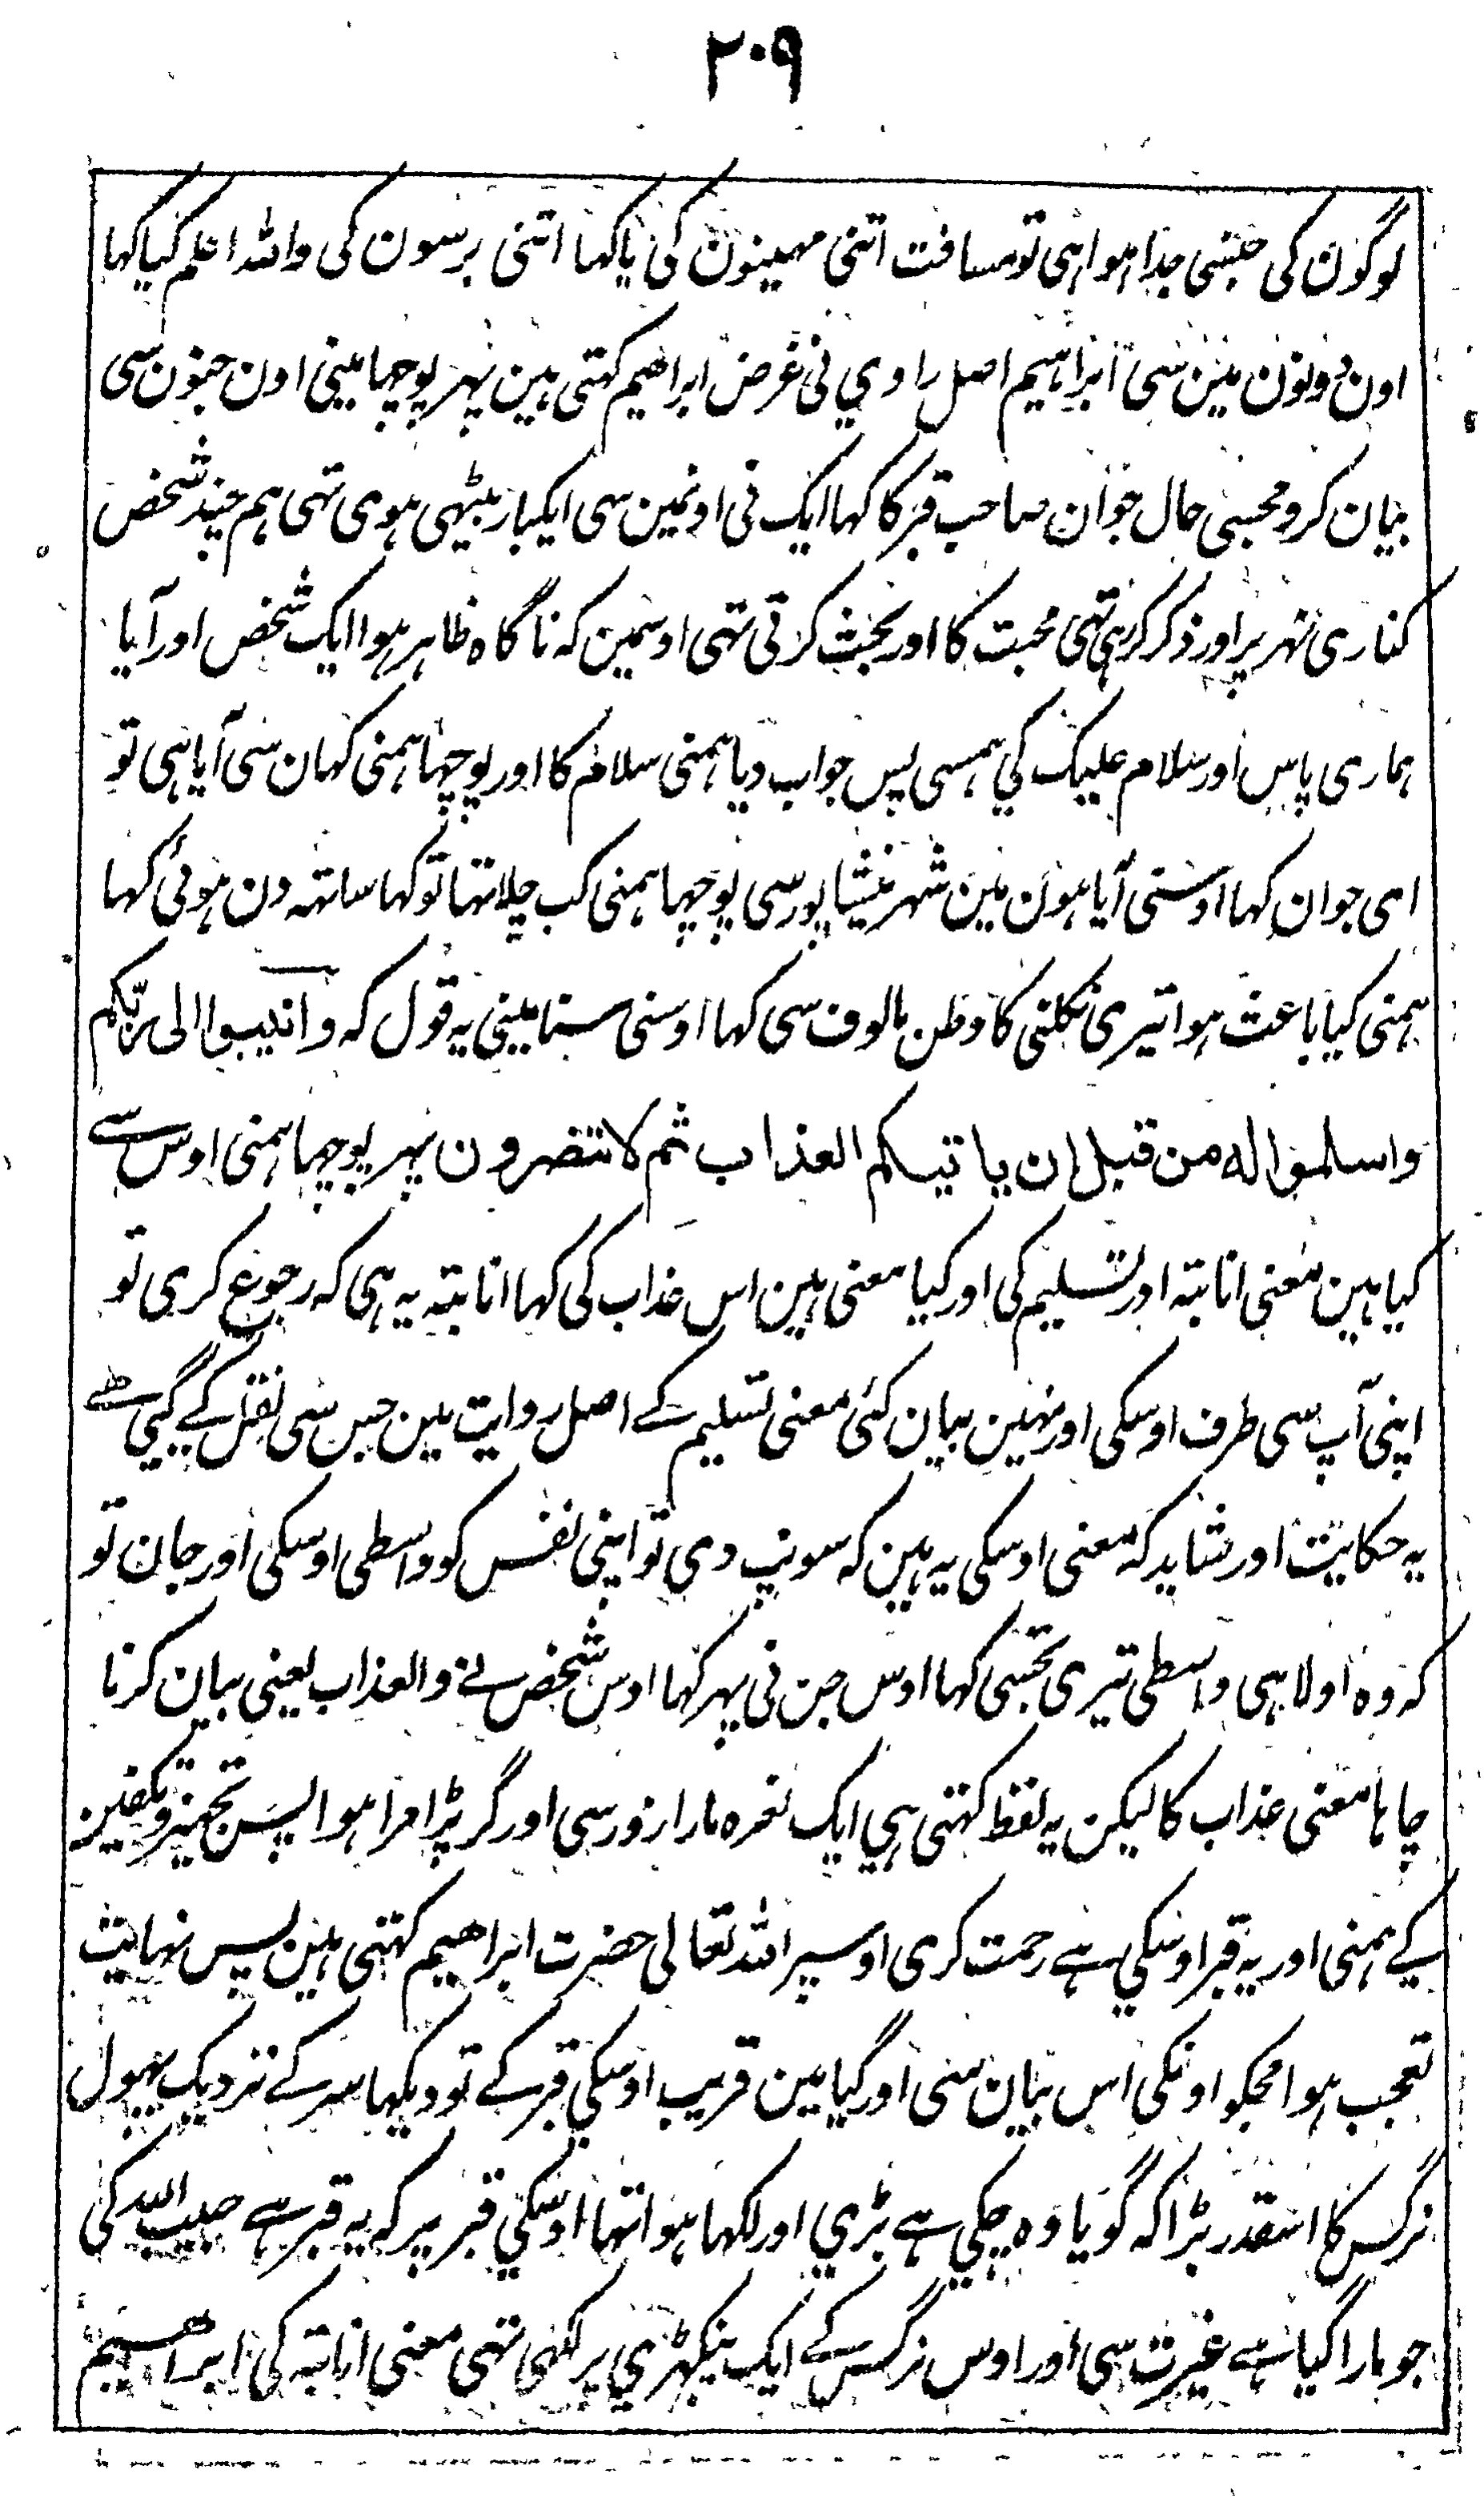 ۲۰۹
لوگون کی جبتسی جدا ہوا ہی تو مسافت اتنی مہینون کی یا کہا اتنی برسون کی واللہ اعلم کیا کہا
اون دونون مین سی ابراہیم اصل راوي نی غرض ابراھیم کہتی ہین پہر پوچہا مینی اون جنون سی
بیان کرو مجہسی حال جوان صاحب قبر کا کہا ایک نی اونمین سی ایکبار بیٹہی ہوی تہی ہم چند شخص
کناری نہر پر اور ذکر کر رہی تہی محبت کا اور بحث کرتی تہی اوسمین کہ ناگاہ ظاہر ہوا ایک شخص اور آیا
ہماری پاس اور سلام علیک کي ہمسی پس جواب دیا ہمنی سلام کا اور پوچہا ہمنی کہان سی آیا ہی تو
ای جوان کہا اوسنی آیا ہون مین شہر نیشاپور سی پوچہا ہمنی کب چلا تہا تو کہا ساتہہ دن ہوئی کہا
ہمنی کیا باعث ہوا تیری نکلنی کا وطن مالوف سی کہا اوسنی سنا مینی یہ قول کہ وانیبوا الی ربکم
واسلموا له من قبل ان یاتیکم العذاب ثم لا تنصرون پہر پوچہا ہمنی اوس سے
کیا ہین معنی انابتہ اور تسلیم کی اور کیا معنی ہین اس عذاب کی کہا انابتہ یہ ہی کہ رجوع کری تو
اپنی آپ سی طرف اوسکی اور نہین بیان کئی معنی تسلیم کے اصل روایت مین جس سی نقل کے گئی ہے
یہ حکایت اور شاید کہ معنی اوسکی یہ ہین کہ سونپ دی تو اپنی نفس کو واسطی اوسکی اور جان تو
کہ وہ اولا ہی واسطی تیری تجہسی کہا اوس جن نی پہر کہا اوس شخص نے والعذاب یعنی بیان کرنا
چاہا معنی عذاب کا لیکن یہ لفظ کہتی ہي ایک نعرہ مارا زور سی اور گر پڑا مرا ہوا پس تجہیز و تکفین
کے ہمنی اور یہ قبر اوسکي ہے رحمت کری اوسپر اللہ تعالی حضرت ابراھیم کہتی ہین پس نہایت
تعجب ہوا مجکو اونکی اس بیان سی اور گیا مین قریب اوسکي قبر کے تو دیکہا سر کے نزدیک پہول
نرگس کا اسقدر بڑا کہ گویا وہ چکي ہے بڑي اور لکہا ہوا تہا اوسکي قبر پر کہ یہ قبر ہے حبیب اللہ کی
جو مارا گیا ہے غیرت سی اور اوس نرگس کے ایک پنکہڑي پر لکہی تہی معنی انابتہ کی ابراھیم